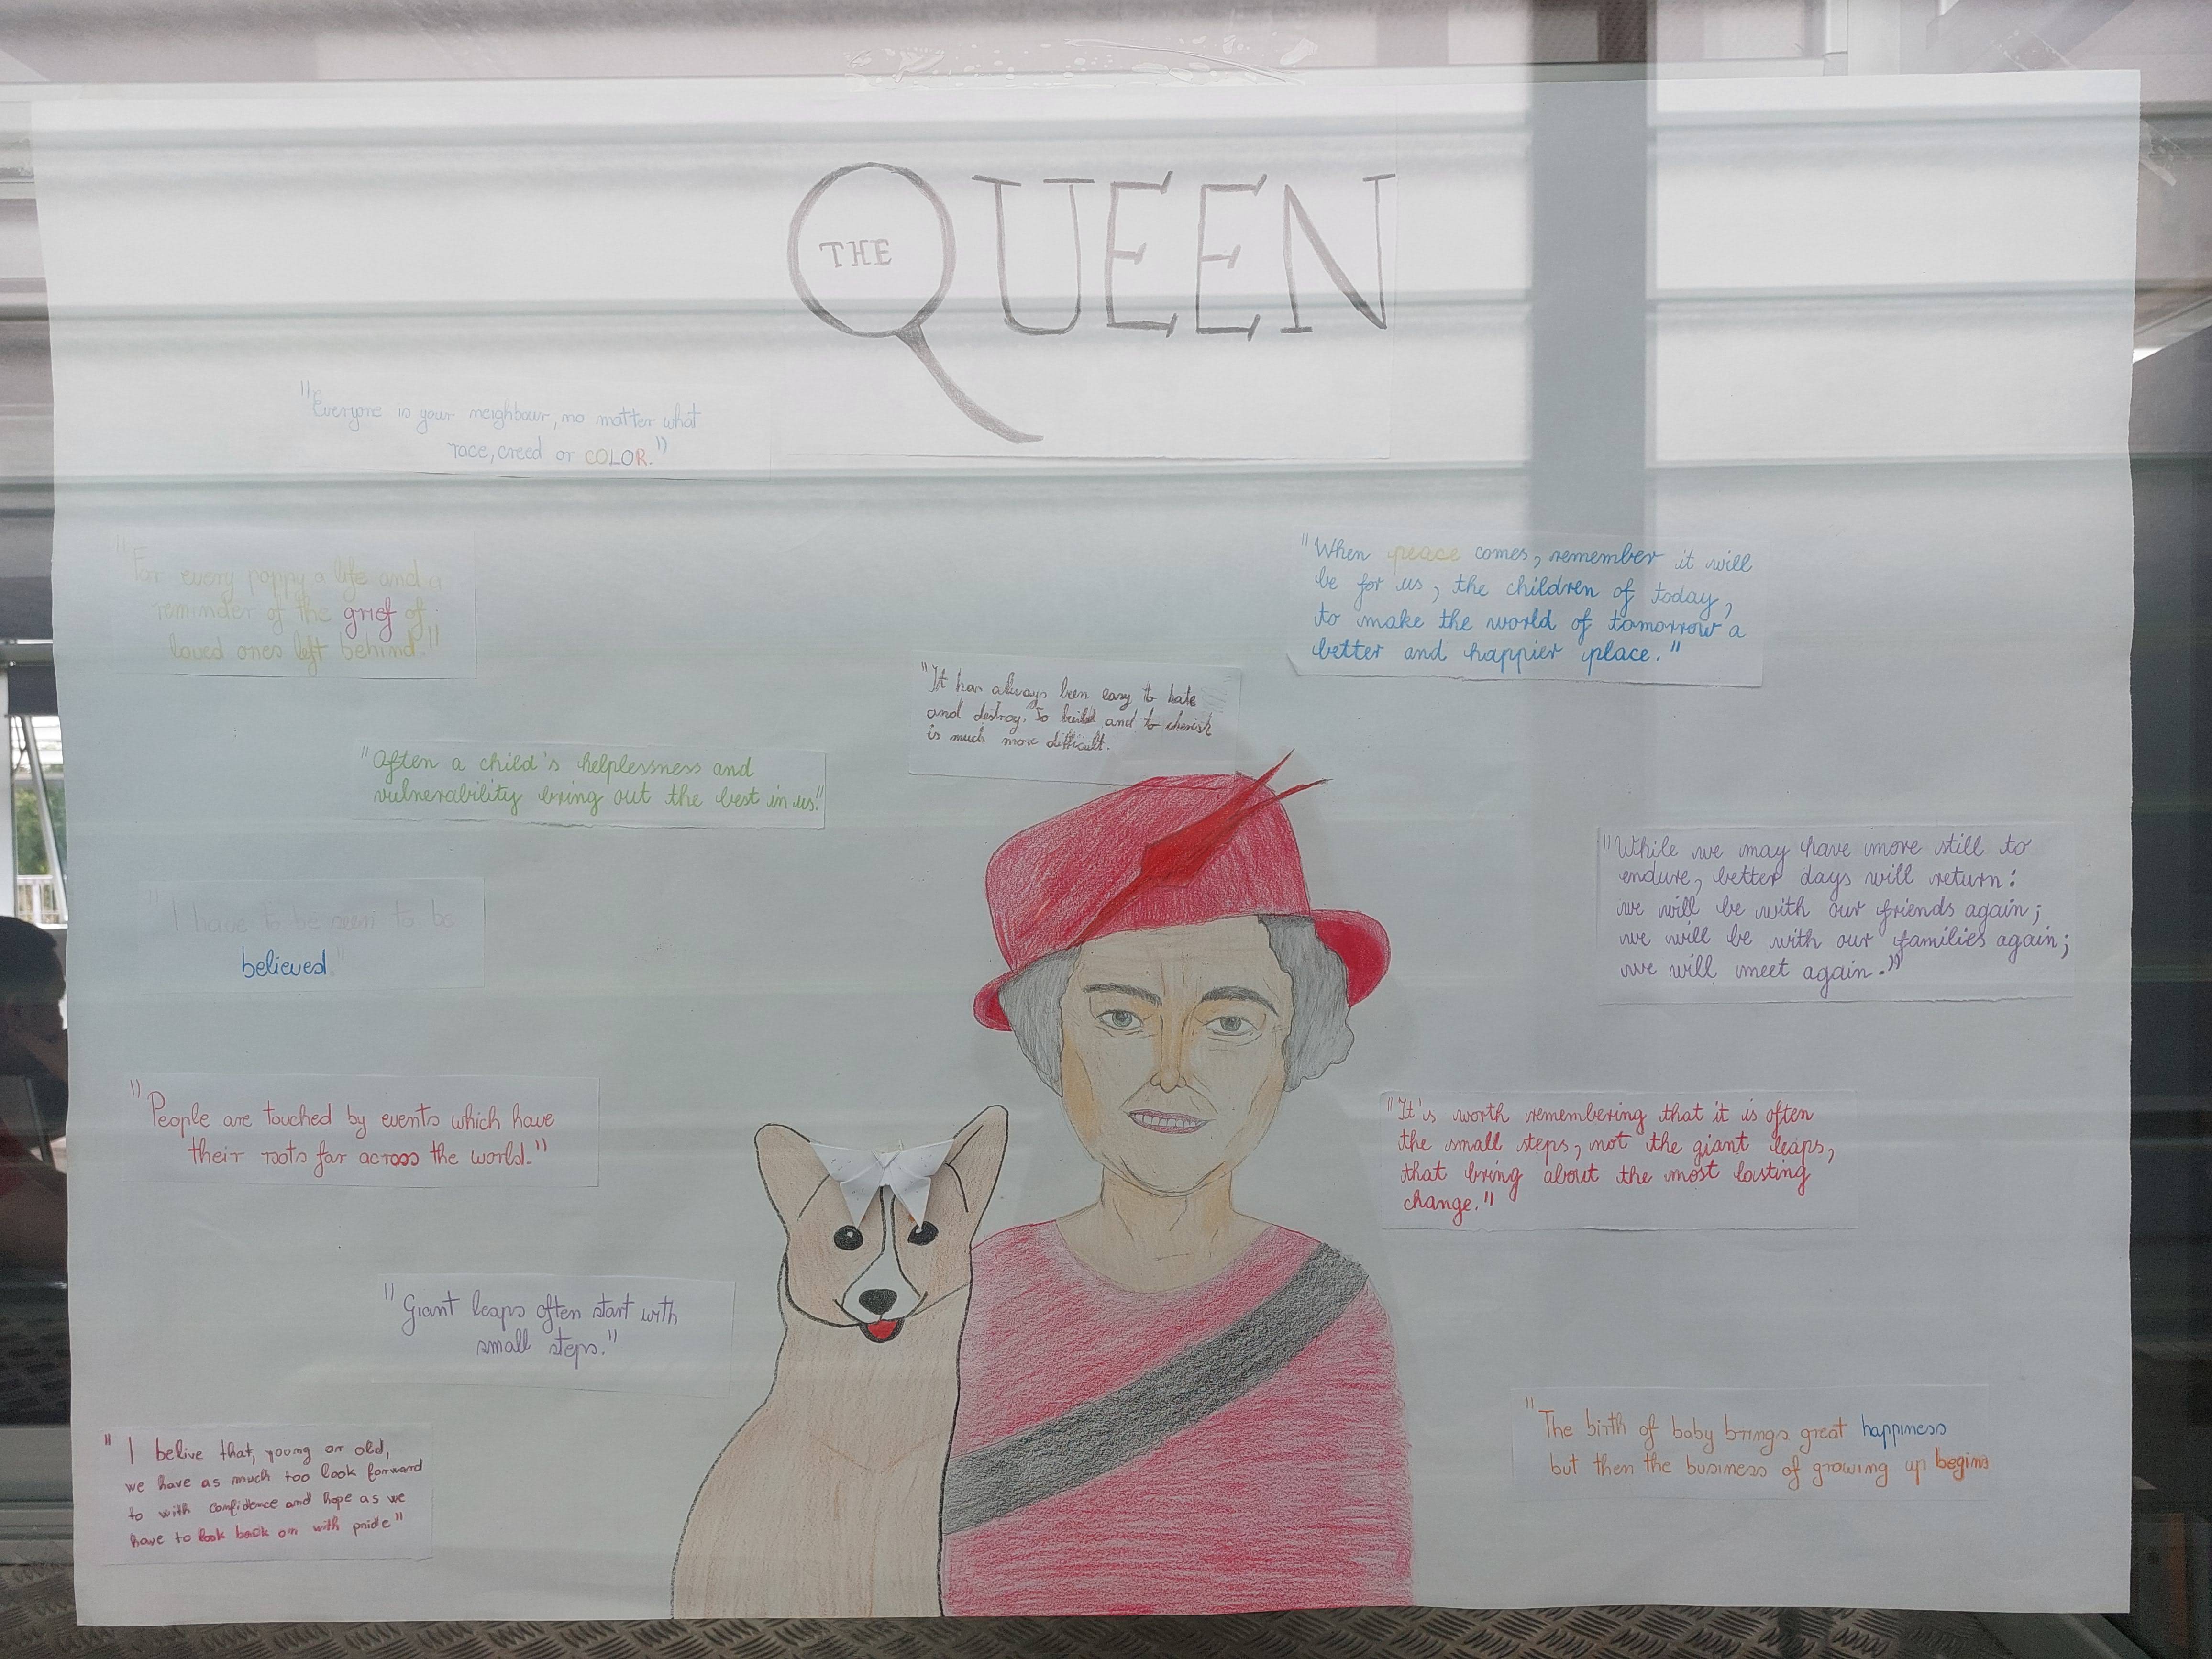 THE
QUEEN
"Everyone is your neighbour, no matter what
race, creed or COLOR."
"For every poppy a life and a
reminder of the grief of
loved ones left behind."
"When peace comes, remember it will
be for us, the children of today,
to make the world of tomorrow a
better and happier place."
"It has always been easy to hate
and destroy. To build and to cherish
is much more difficult.
"Often a child's helplessness and
vulnerability bring out the best in us!"
"While we may have more still to
endure, better days will return:
we will be with our friends again;
we will be with our families again;
we will meet again."
"I have to be seen to be
believed"
"People are touched by events which have
their roots far across the world."
"It's worth remembering that it is often
the small steps, not the giant leaps,
that bring about the most lasting
change."
"Giant leaps often start with
small steps."
"The birth of baby brings great happiness
but then the business of growing up begins
"I belive that, young or old,
we have as much too look forward
to with confidence and hope as we
have to look back on with pride"